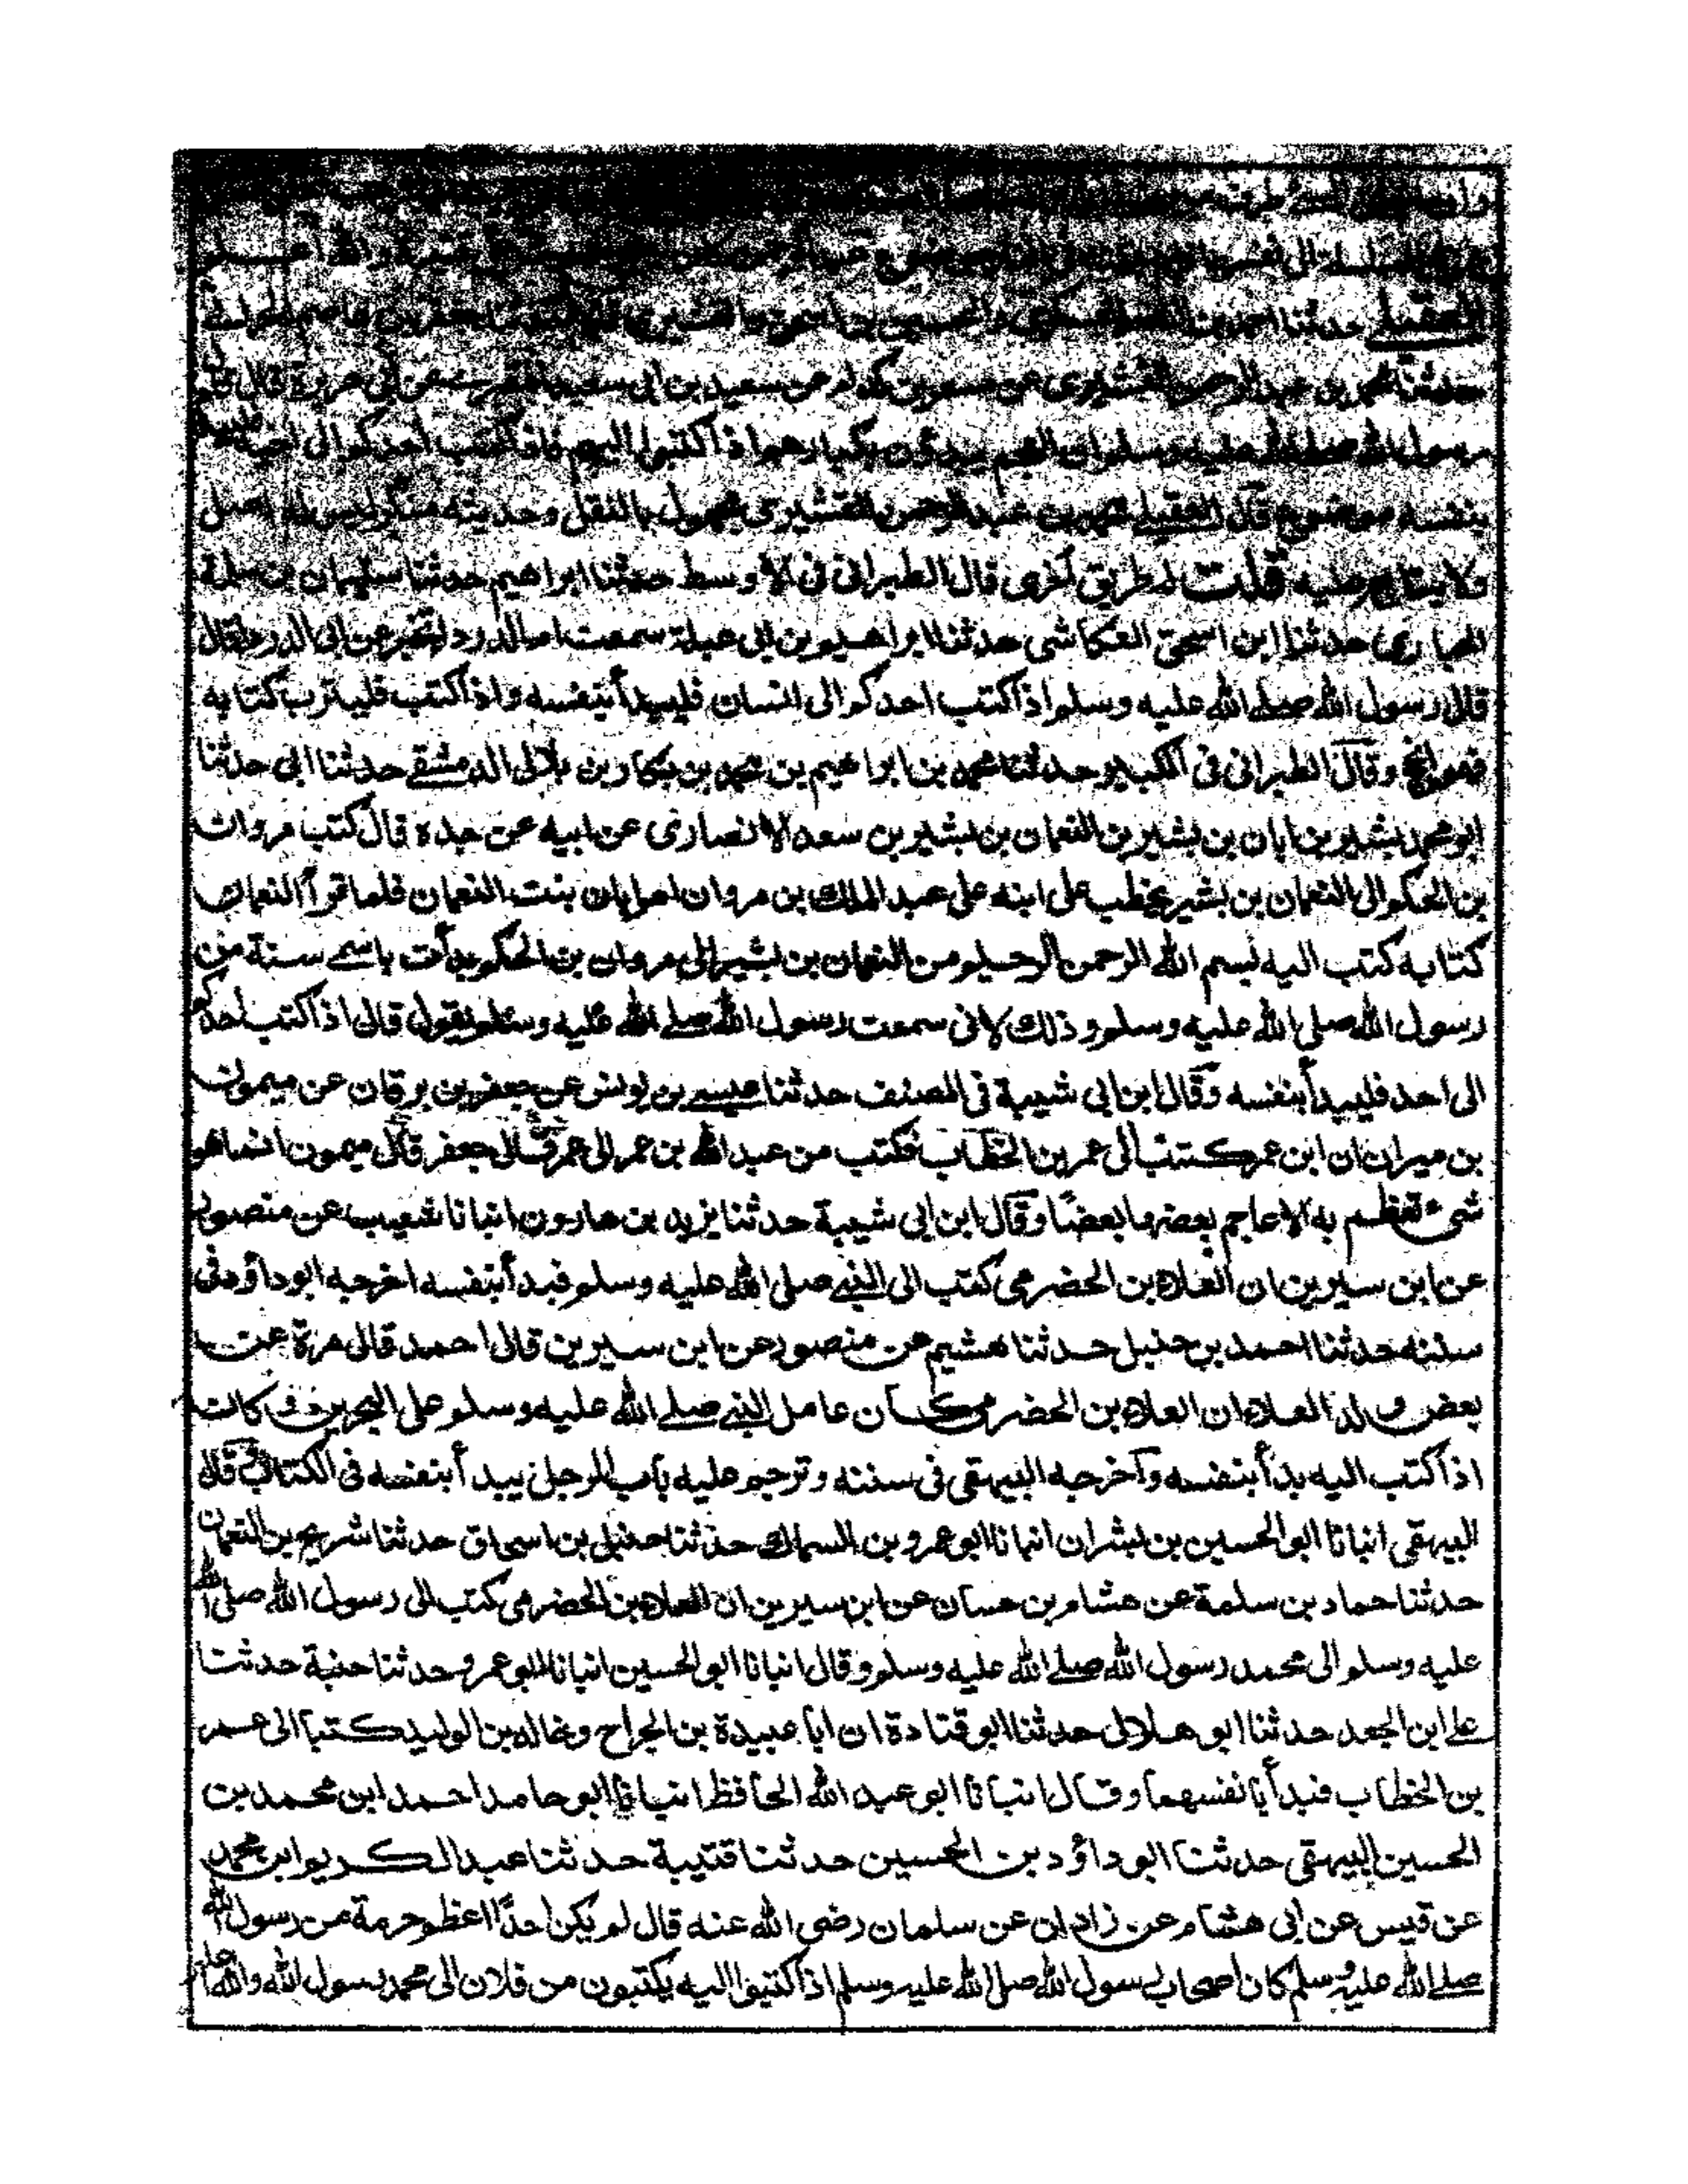 العقيلي حدثنا احمد بن
حدثنا محمد بن عبد الرحمن القشيرى عن مسعر بن كدام عن سعيد بن ابى سعيد عن ابى هريرة قال قال
رسول الله صلے الله عليه وسلم ان العجم يبدؤن بكبارهم اذا كتبوا اليهم فاذا كتب احدكم الى اخيه فليبدأ
بنفسه موضوع قال العقيلے محمد بن عبد الرحمن القشيرى مجهول بالنقل وحديثه منكر ليس له اصل
ولا يتابع عليه قلت له طريق آخرى قال الطبرانى فى الاوسط حدثنا ابراهيم حدثنا سليمان بن سلمة
الخبايرى حدثنا ابن اسحق العكاشى حدثنا ابراهيم بن ابى عبلة سمعت ام الدرداء تخبر عن ابى الدرداء قال
قال رسول الله صلے الله عليه وسلم اذا كتب احدكم الى انسان فليبدأ بنفسه واذا كتب فليترب كتابه
فهو انجح وقال الطبرانى فى الكبير حدثنا محمد بن ابراهيم بن محمد بن بكار بن بلال الدمشقے حدثنا ابى حدثنا
ابو محمد بشير بن ابان بن بشير بن النعمان بن بشير بن سعد الانصارى عن ابيه عن جده قال كتب مروان
بن الحكم الى النعمان بن بشير يخطب على ابنه على عبد الملك بن مروان ام ابان بنت النعمان فلما قرأ النعمان
كتابه كتب اليه بسم الله الرحمن الرحيم من النعمان بن بشير الى مروان بن الحكم بدأت باسمے سنة من
رسول الله صلى الله عليه وسلم وذلك لانى سمعت رسول الله صلے الله عليه وسلم يقول قال اذا كتب احدكم
الى احد فليبدأ بنفسه وقال ابن ابى شيبة فى المصنف حدثنا عيسے بن يونس عن جعفر بن برقان عن ميمون
بن ميران ان ابن عمر كتب الى عمر بن الخطاب فكتب من عبد الله بن عمر الى عمر قال جعفر قال ميمون انما هو
شىء تعظم به الاعاجم بعضها بعضا وقال ابن ابى شيبة حدثنا يزيد بن هارون انبانا شعيب عن منصور
عن ابن سيرين ان العلاء بن الحضرمى كتب الى النبے صلى الله عليه وسلم فبدأ بنفسه اخرجه ابو داؤد فى
سننه حدثنا احمد بن حنبل حدثنا هشيم عن منصور عن ابن سيرين قال احمد قال مرة عن
بعض ولد العلاء ان العلاء بن الحضرمى كان عامل النبے صلے الله عليه وسلم على البحرين وكان
اذا كتب اليه بدأ بنفسه وآخرجه البيهقى فى سننه وترجم عليه باب الرجل يبدأ بنفسه فى الكتاب قال
البيهقى انبانا ابو الحسين بن بشران انبانا ابو عمرو بن السماك حدثنا حنبل بن اسحاق حدثنا شريح بن النعمان
حدثنا حماد بن سلمة عن هشام بن حسان عن ابن سيرين ان العلاء بن الحضرمى كتب الى رسول الله صلى الله
عليه وسلم الى محمد رسول الله صلے الله عليه وسلم وقال انبانا ابو الحسين انبانا ابو عمرو حدثنا حدثنا
علے ابن الجعد حدثنا ابو هلال حدثنا ابو قتادة ان ابا عبيدة بن الجراح وخالد بن الوليد كتبا الى عمر
بن الخطاب فبدأ بانفسهما وقال انبانا ابو عبد الله الحافظ انبانا ابو حامد احمد ابن محمد بن
الحسين البيهقى حدثنا ابو داؤد بن الحسين حدثنا قتيبة حدثنا عبد الكريم ابن محمد
عن قيس عن ابى هشام عن زاذان عن سلمان رضى الله عنه قال لم يكن احدًا اعظم حرمة من رسول الله
صلے الله عليه وسلم كان اصحاب رسول الله صلى الله عليه وسلم اذا كتبوا اليه يكتبون من فلان الى محمد رسول الله والله اعلم